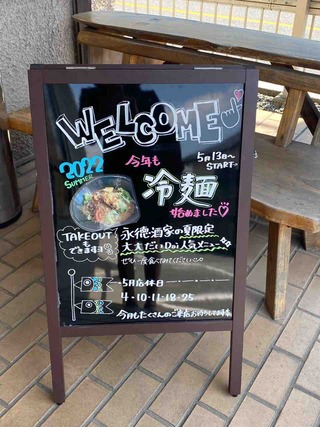 WELCOME
2022
SUMMER
今年も
5月13日〜
START
冷麺
始めました♡
TAKEOUT
できます
永徳酒家の夏限定
大大だいDai人気メニュー
ぜひ一度食べてみてください
5月店休日
4・10・11・18・25
今月もたくさんのご来店お待ちしてます